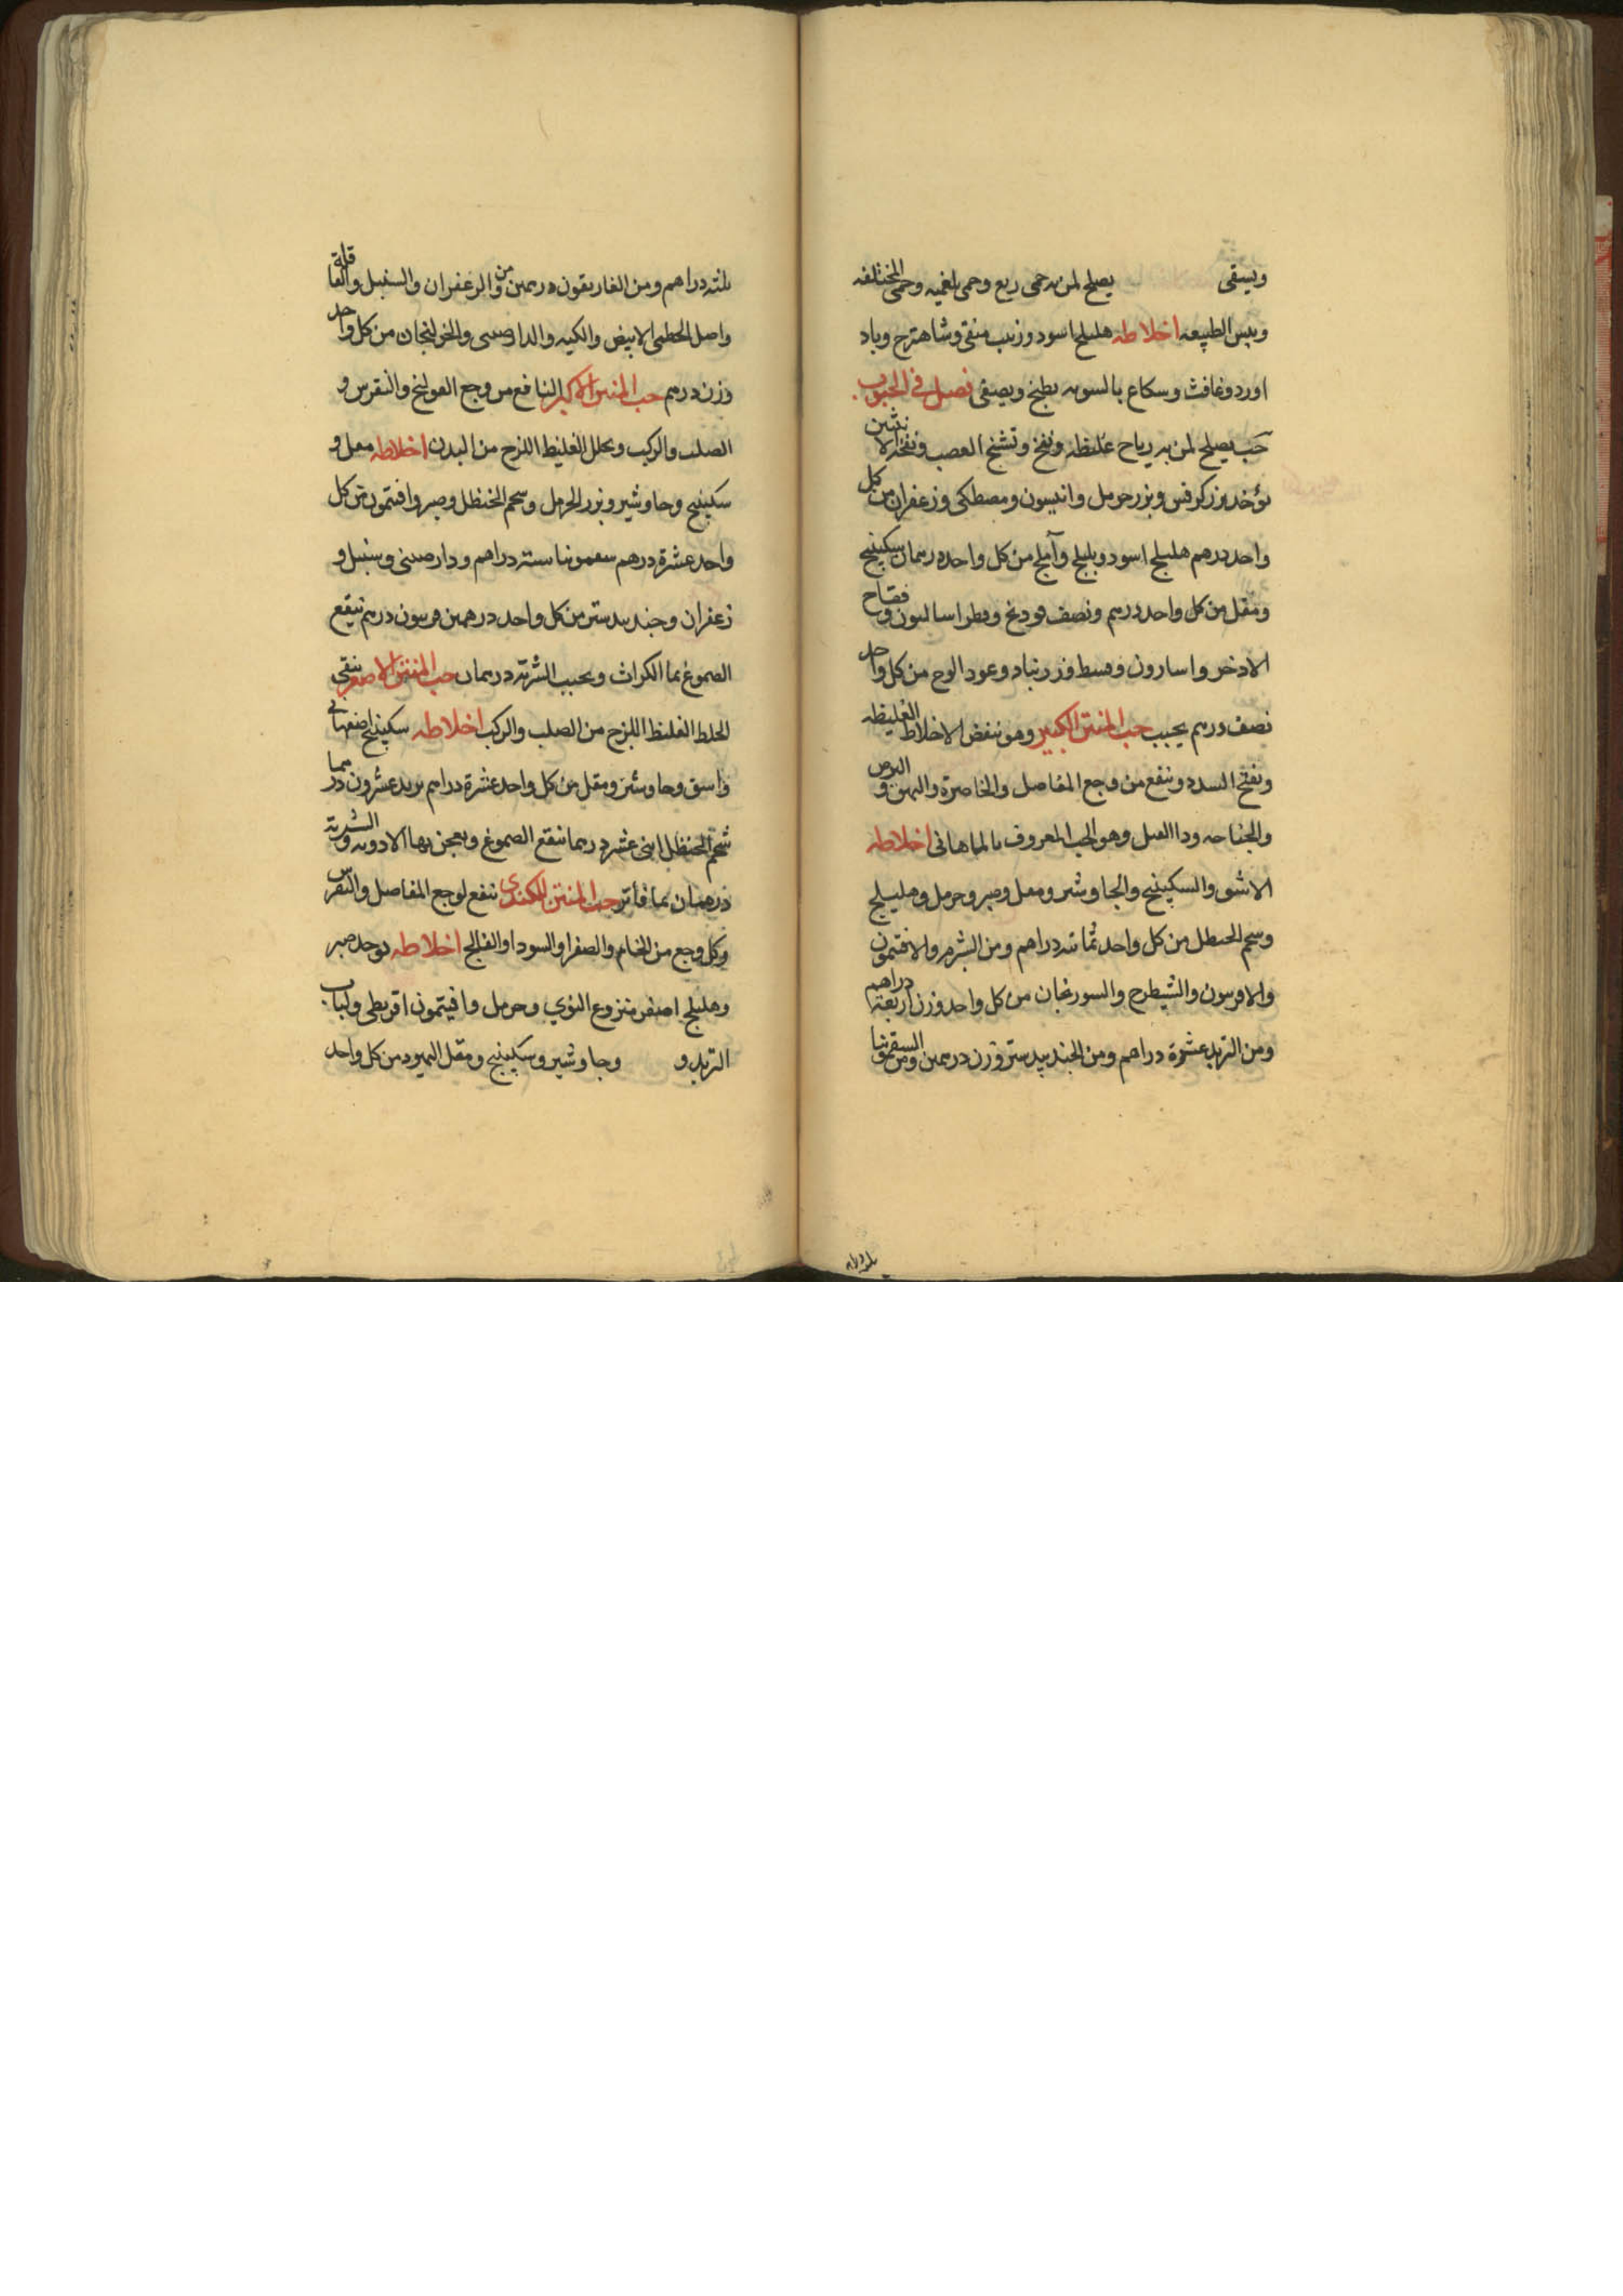 ويسقى يصلح لمن به حمى ربع وحمى بلغميه وحمى المختلفه
ويبس الطبيعه اخلاطه هليلج اسود وزبيب منقى وشاهترج وباد
اورد وغافث وسكاع بالسويه يطبخ ويصفى فصل في الحبوب
حب يصلح لمن به رياح غليظه ونفخ وتشنج العصب ونفخ الانثيين
يؤخذ بزر كرفس وبزر حرمل وانيسون ومصطكى وزعفران من كل
واحد درهم هليلج اسود وبليلج وآملج من كل واحد درهمان سكبينج
ومقل من كل واحد درهم ونصف فودنج وفطراساليون وفقاح
الاذخر واسارون وقسط وزرنباد وعود الوج من كل واحد
نصف درهم يحبب حب المنتن الكبير وهو ينفض الاخلاط الغليظه
ويفتح السدد وينفع من وجع المفاصل والخاصرة والبهق والبرص
ودا الفيل وهو الحب المعروف بالماهانى اخلاطه
الاشق والسكبينج والجاوشير ومقل وصبر وحرمل وهليلج
وشحم الحنظل من كل واحد ثمانيه دراهم ومن الشبرم والافتيمون
والافربيون والشيطرج والسورنجان من كل واحد وزن اربعة دراهم
ومن التربد عشرة دراهم ومن الجندبيدستر وزن درهمين ومن السقمونيا
ثلثه دراهم ومن الغاريقون درهمين ومن الزعفران والسنبل والقاقلة
واصل الخطمى الابيض والكيه والدارصينى والخولنجان من كل واحد
وزن درهم حب المنتن الاكبر النافع من وجع القولنج والنقرس و
الصلب والركب ويحلل الغليظ اللزج من البدن اخلاطه مقل و
سكبينج وجاوشير وبزر الحرمل وشحم الحنظل وصبر وافتيمون من كل
واحد عشرة درهم سقمونيا ستة دراهم ودارصينى وسنبل و
زعفران وجندبيدستر من كل واحد درهمين فربيون درهم ينقع
الصموغ بما الكراث ويحبب الشربة درهمان حب المنتن الاصغر ينقى
الخلط الغليظ اللزج من الصلب والركب اخلاطه سكبينج اصفهانى
واشق وجاوشير ومقل من كل واحد عشرة دراهم تربد عشرون درهما
شحم الحنظل اثنى عشر درهما تنقع الصموغ ويعجن بها الادويه والشربة
درهمان بما فاتر حب المنتن للكندى ينفع لوجع المفاصل والنقرس
وكل وجع من الخام والصفرا والسودا والفالج اخلاطه يوخذ صبر
وهليلج اصفر منزوع النوي وحرمل وافيتمون اقريطى ولباب
التربد و وجاوشير وسكبينج ومقل اليهود من كل واحد